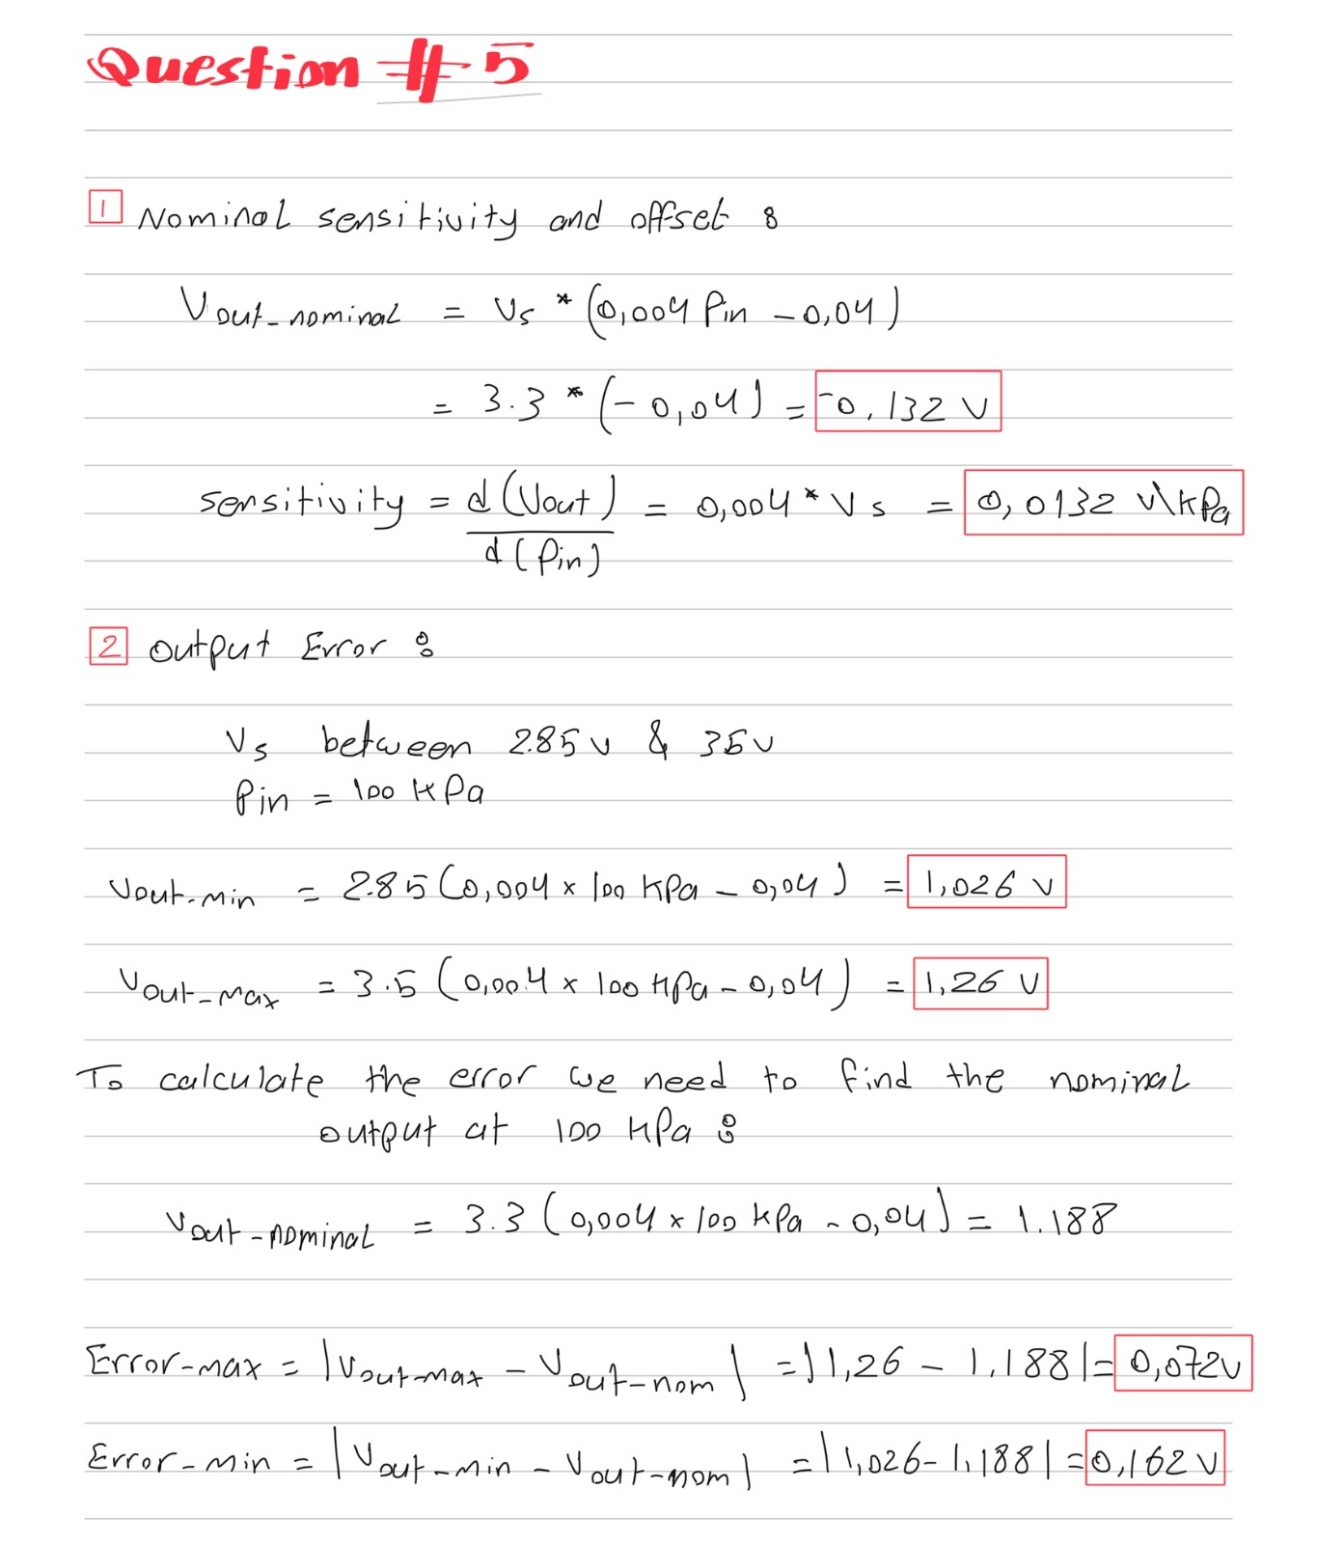 Question #5
1 Nominal sensitivity and offset :
Vout-nominal = Vs * (0,004 Pin - 0,04)
= 3.3 * (- 0,04) = -0,132 V
sensitivity = d(Vout) / d(Pin) = 0,004 * Vs = 0,0132 V\kPa
2 output Error :
Vs between 2.85 v & 3.5 v
Pin = 100 kPa
Vout-min = 2.85 (0,004 x 100 kPa - 0,04) = 1,026 v
Vout-max = 3.5 (0,004 x 100 kPa - 0,04) = 1,26 V
To calculate the error we need to find the nominal
output at 100 kPa :
Vout-nominal = 3.3 (0,004 x 100 kPa - 0,04) = 1.188
Error-max = |Vout-max - Vout-nom| = |1,26 - 1.188| = 0,072v
Error-min = |Vout-min - Vout-nom| = |1,026 - 1,188| = 0,162 V